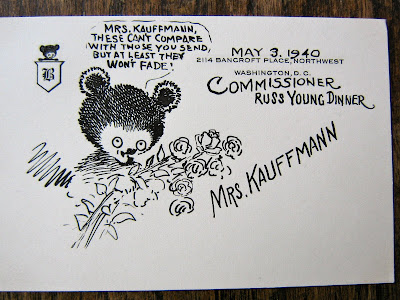 MRS. KAUFFMANN,
THESE CAN'T COMPARE
WITH THOSE YOU SEND,
BUT AT LEAST THEY
WON'T FADE!
B
MAY 3, 1940
2114 BANCROFT PLACE, NORTHWEST
WASHINGTON, D.C.
COMMISSIONER
RUSS YOUNG DINNER
MRS. KAUFFMANN